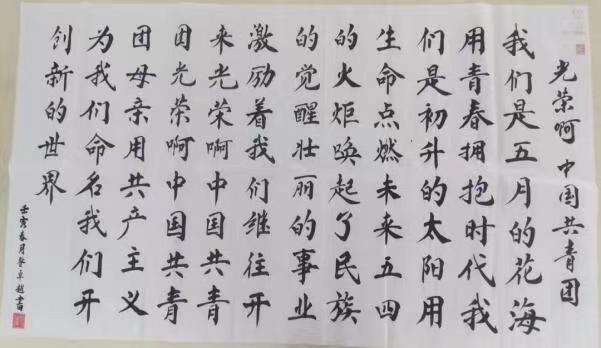 光荣啊中国共青团
我们是五月的花海
用青春拥抱时代我
们是初升的太阳用
生命点燃未来五四
的火炬唤起了民族
的觉醒壮丽的事业
激励着我们继往开
来光荣啊中国共青
团光荣啊中国共青
团母亲用共产主义
为我们命名我们开
创新的世界
壬寅春月晉卓越書